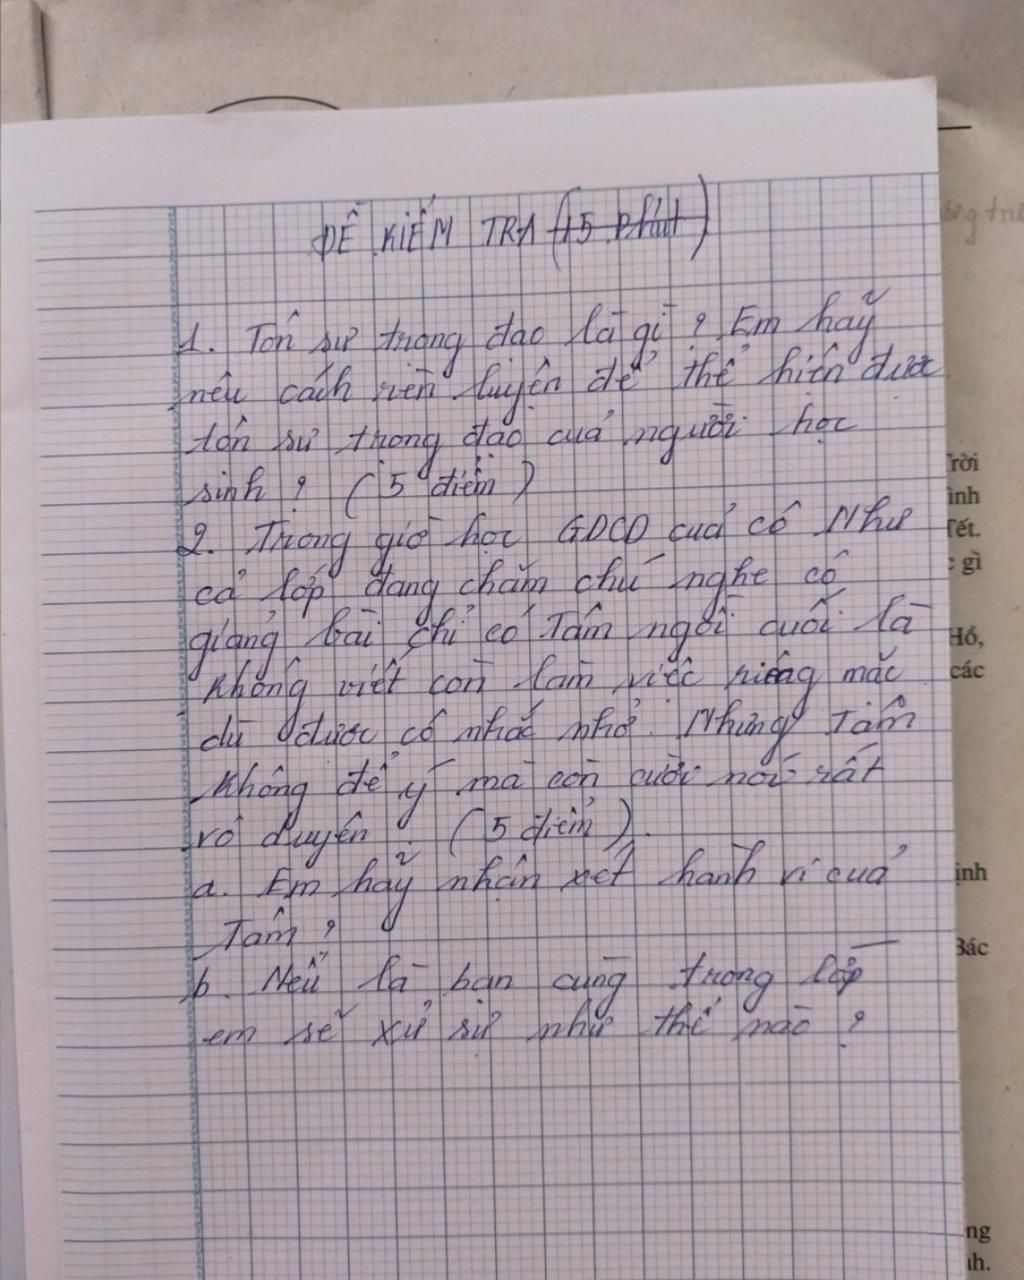 ĐỀ KIỂM TRA (15 phút)
1. Tôn sư trọng đạo là gì ? Em hãy
nêu cách rèn luyện để thể hiện được
tôn sư trọng đạo của người học
sinh ? (5 điểm)
2. Trong giờ học GDCD của cô Như
cả lớp đang chăm chú nghe cô
giảng bài chỉ có Tâm ngồi cuối là
không viết còn làm việc riêng mặc
dù được cô nhắc nhở. Nhưng Tâm
không để ý mà còn cười nói rất
vô duyên. (5 điểm).
a. Em hãy nhận xét hành vi của
Tâm ?
b. Nếu là bạn cùng trong lớp
em sẽ xử sự như thế nào ?
Trời
Tết.
gì
Hồ,
các
ịnh
Bác